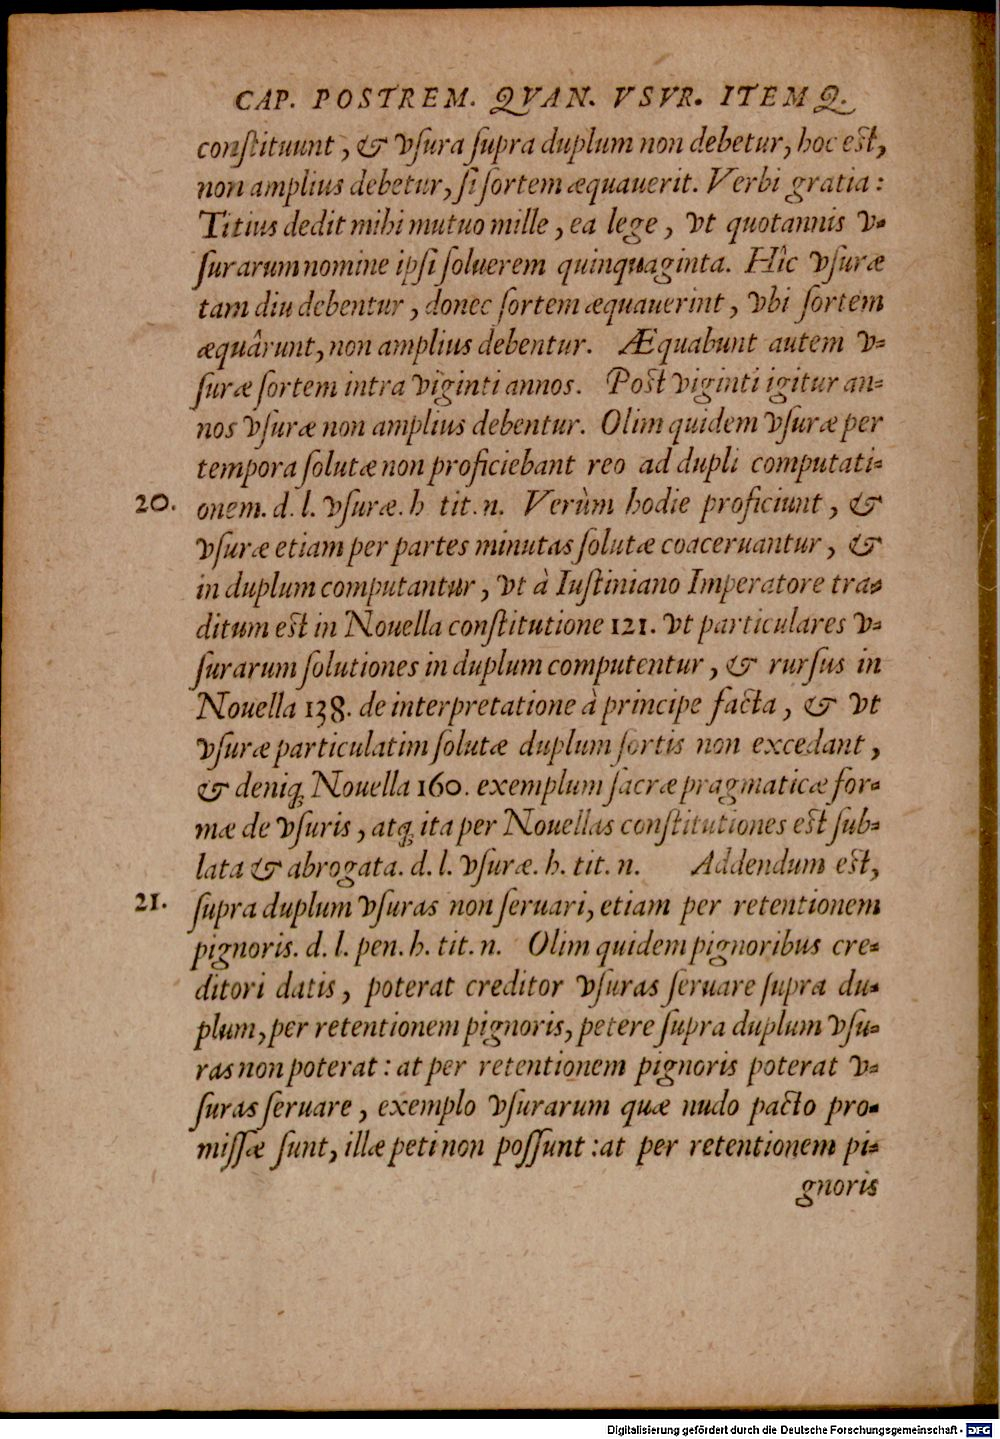 CAP. POSTREM. QVAN. VSVR. ITEM Q.
conſtituunt, & vſura ſupra duplum non debetur, hoc eſt,
non amplius debetur, ſi ſortem æquauerit. Verbi gratia:
Titius dedit mihi mutuo mille, ea lege, vt quotannis v-
ſurarum nomine ipſi ſoluerem quinquaginta. Hîc vſuræ
tam diu debentur, donec ſortem æquauerint, vbi ſortem
æquârunt, non amplius debentur. Æquabunt autem v-
ſuræ ſortem intra viginti annos. Poſt viginti igitur an-
nos vſuræ non amplius debentur. Olim quidem vſuræ per
tempora ſolutæ non proficiebant reo ad dupli computati-
20. onem. d. l. vſuræ. h tit. n. Verùm hodie proficiunt, &
vſuræ etiam per partes minutas ſolutæ coaceruantur, &
in duplum computantur, vt à Iuſtiniano Imperatore tra-
ditum eſt in Nouella conſtitutione 121. vt particulares v-
ſurarum ſolutiones in duplum computentur, & rurſus in
Nouella 138. de interpretatione à principe facta, & vt
vſuræ particulatim ſolutæ duplum ſortis non excedant,
& deniq; Nouella 160. exemplum ſacræ pragmaticæ for-
mæ de vſuris, atq; ita per Nouellas conſtitutiones eſt ſub-
lata & abrogata. d. l. vſuræ. h. tit. n. Addendum eſt,
21. ſupra duplum vſuras non ſeruari, etiam per retentionem
pignoris. d. l. pen. h. tit. n. Olim quidem pignoribus cre-
ditori datis, poterat creditor vſuras ſeruare ſupra du-
plum, per retentionem pignoris, petere ſupra duplum vſu-
ras non poterat: at per retentionem pignoris poterat v-
ſuras ſeruare, exemplo vſurarum quæ nudo pacto pro-
miſſæ ſunt, illæ peti non poſſunt: at per retentionem pi-
gnoris
Digitalisierung gefördert durch die Deutsche Forschungsgemeinschaft - DFG